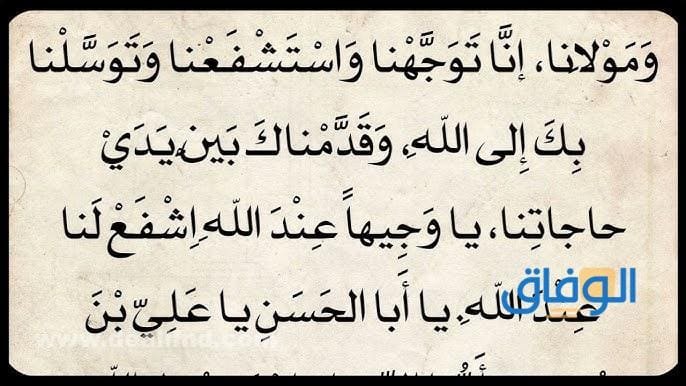 وَمَوْلانا، إنَّا تَوَجَّهْنا وَاسْتَشْفَعْنا وَتَوَسَّلْنا
بِكَ إِلى اللّهِ، وَقَدَّمْناكَ بَيْنَ يَدَيْ
حاجاتِنا، يا وَجِيهاً عِنْدَ اللّهِ اِشْفَعْ لَنا
الوفاق
عِنْدَ اللّهِ. يا أَبا الحَسَن يا عَلِيّ بْنَ